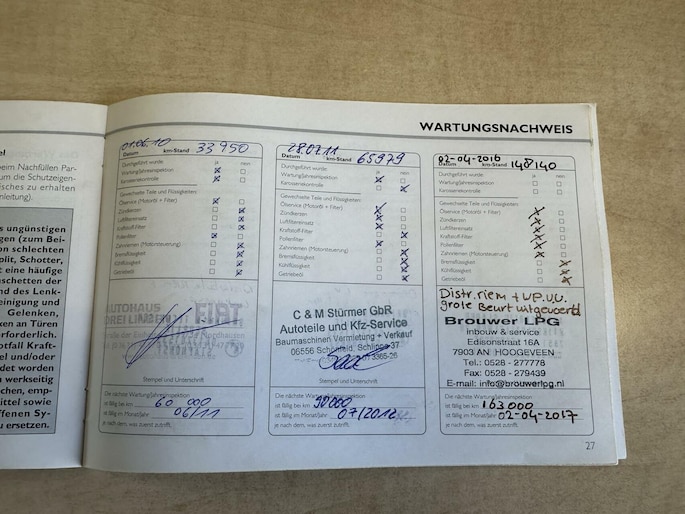 WARTUNGSNACHWEIS
el
beim Nachfüllen Par-
um die Schutzeigen-
isches zu erhalten
nleitung).
s ungünstigen
gen (zum Bei-
on schlechten
olit, Schotter,
t eine häufige
nschetten der
nd des Lenk-
einigung und
Gelenken,
ken an Türen
erforderlich.
otfall Kraft-
el und/oder
det worden
n werkseitig
chen, emp-
ittel sowie
ffenen Sy-
u ersetzen.
01.06.10 33 950
Datum km-Stand
Durchgeführt wurde ja nein
Wartung/Jahresinspektion
Karosseriekontrolle
Gewechselte Teile und Flüssigkeiten
Ölservice (Motoröl + Filter)
Zündkerzen
Luftfiltereinsatz
Kraftstoff-Filter
Pollenfilter
Zahnriemen (Motorsteuerung)
Bremsflüssigkeit
Kühlflüssigkeit
Getriebeöl
AUTOHAUS
FIAT
Stempel und Unterschrift
Die nächste Wartung/Jahresinspektion
ist fällig bei km 60 000
ist fällig im Monat/Jahr 06/11
je nach dem, was zuerst zutrifft.
28.07.11 65979
Datum km-Stand
Durchgeführt wurde ja nein
Wartung/Jahresinspektion
Karosseriekontrolle
Gewechselte Teile und Flüssigkeiten
Ölservice (Motoröl + Filter)
Zündkerzen
Luftfiltereinsatz
Kraftstoff-Filter
Pollenfilter
Zahnriemen (Motorsteuerung)
Bremsflüssigkeit
Kühlflüssigkeit
Getriebeöl
C & M Stürmer GbR
Autoteile und Kfz-Service
Baumaschinen Vermietung + Verkauf
06556 Schönfeld, Schlippe 37
3365-26
Stempel und Unterschrift
Die nächste Wartung/Jahresinspektion
ist fällig bei km 90000
ist fällig im Monat/Jahr 07/2012
je nach dem, was zuerst zutrifft.
02-04-2016 148140
Datum km-Stand
Durchgeführt wurde ja nein
Wartung/Jahresinspektion
Karosseriekontrolle
Gewechselte Teile und Flüssigkeiten
Ölservice (Motoröl + Filter)
Zündkerzen
Luftfiltereinsatz
Kraftstoff-Filter
Pollenfilter
Zahnriemen (Motorsteuerung)
Bremsflüssigkeit
Kühlflüssigkeit
Getriebeöl
Distr.riem + WP. VV.
grote Beurt uitgevoerd
Brouwer LPG
inbouw & service
Edisonstraat 16A
7903 AN HOOGEVEEN
Tel.: 0528 - 277778
Fax: 0528 - 279439
E-mail: info@brouwerlpg.nl
Die nächste Wartung/Jahresinspektion
ist fällig bei km 163000
ist fällig im Monat/Jahr 02-04-2017
je nach dem, was zuerst zutrifft.
27